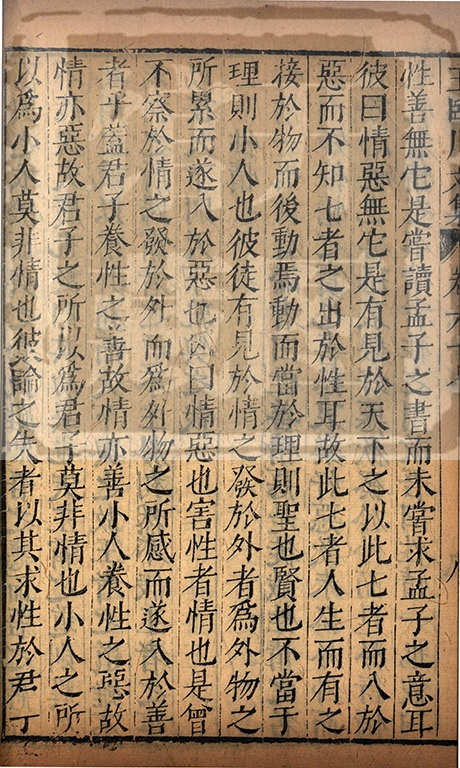 王臨川文集 卷六十 八
性善無它是嘗讀孟子之書而未嘗求孟子之意耳
彼曰情惡無它是有見於天下之以此七者而入於
惡而不知七者之出於性耳故此七者人生而有之
接於物而後動焉動而當於理則聖也賢也不當于
理則小人也彼徒有見於情之發於外者爲外物之
所累而遂入於惡也因曰情惡也害性者情也是曾
不察於情之發於外而爲外物之所感而遂入於善
者乎蓋君子養性之善故情亦善小人養性之惡故
情亦惡故君子之所以爲君子莫非情也小人之所
以爲小人莫非情也彼論之失者以其求性於君丁